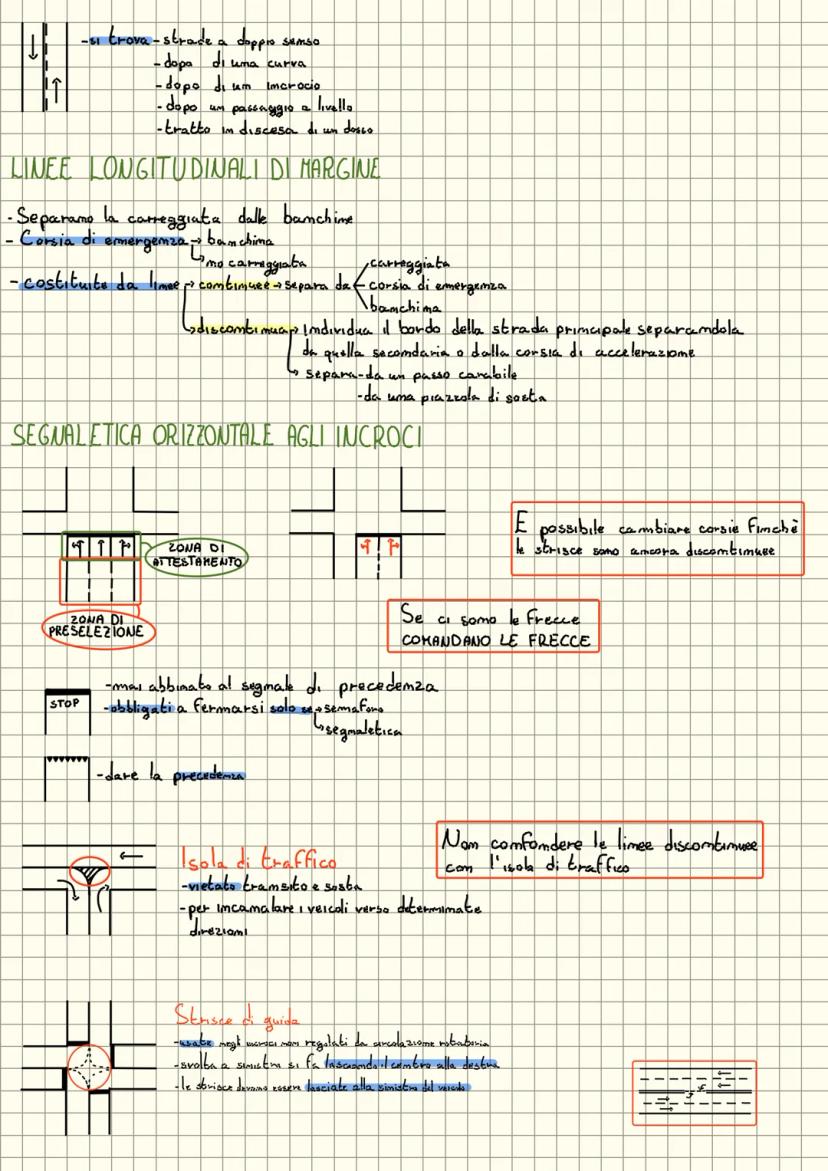 -si trova-strade a doppio senso
-dopo di una curva
-dopo di un incrocio
-dopo un passaggio a livello
-tratto in discesa di un dosso
LINEE LONGITUDINALI DI MARGINE
-Separano la carreggiata dalle banchine
-Corsia di emergenza→banchina
→no carreggiata
-costituite da linee→continuee→separa da
carreggiata
corsia di emergenza
banchina
→discontinua→Individua il bordo della strada principale separandola
da quella secondaria o dalla corsia di accelerazione
→separa-da un passo carabile
-da una piazzola di sosta
SEGNALETICA ORIZZONTALE AGLI INCROCI
ZONA DI
ATTESTAMENTO
ZONA DI
PRESELEZIONE
E possibile cambiare corsie finchè
le strisce sono ancora discontinuee
Se ci sono le frecce
COMANDANO LE FRECCE
STOP
-mai abbinato al segnale di precedenza
-obbligati a fermarsi solo se→semaforo
→segnaletica
-dare la precedenza
Isola di traffico
-vietato transito e sosta
-per incanalare i veicoli verso determinate
direzioni
Non confondere le linee discontinuee
con l'isola di traffico
Strisce di guida
-usate negli incroci non regolati da circolazione rotatoria
-svolta a sinistra si fa lasciando il centro alla destra
-le strisce devono essere lasciate alla sinistra del veicolo